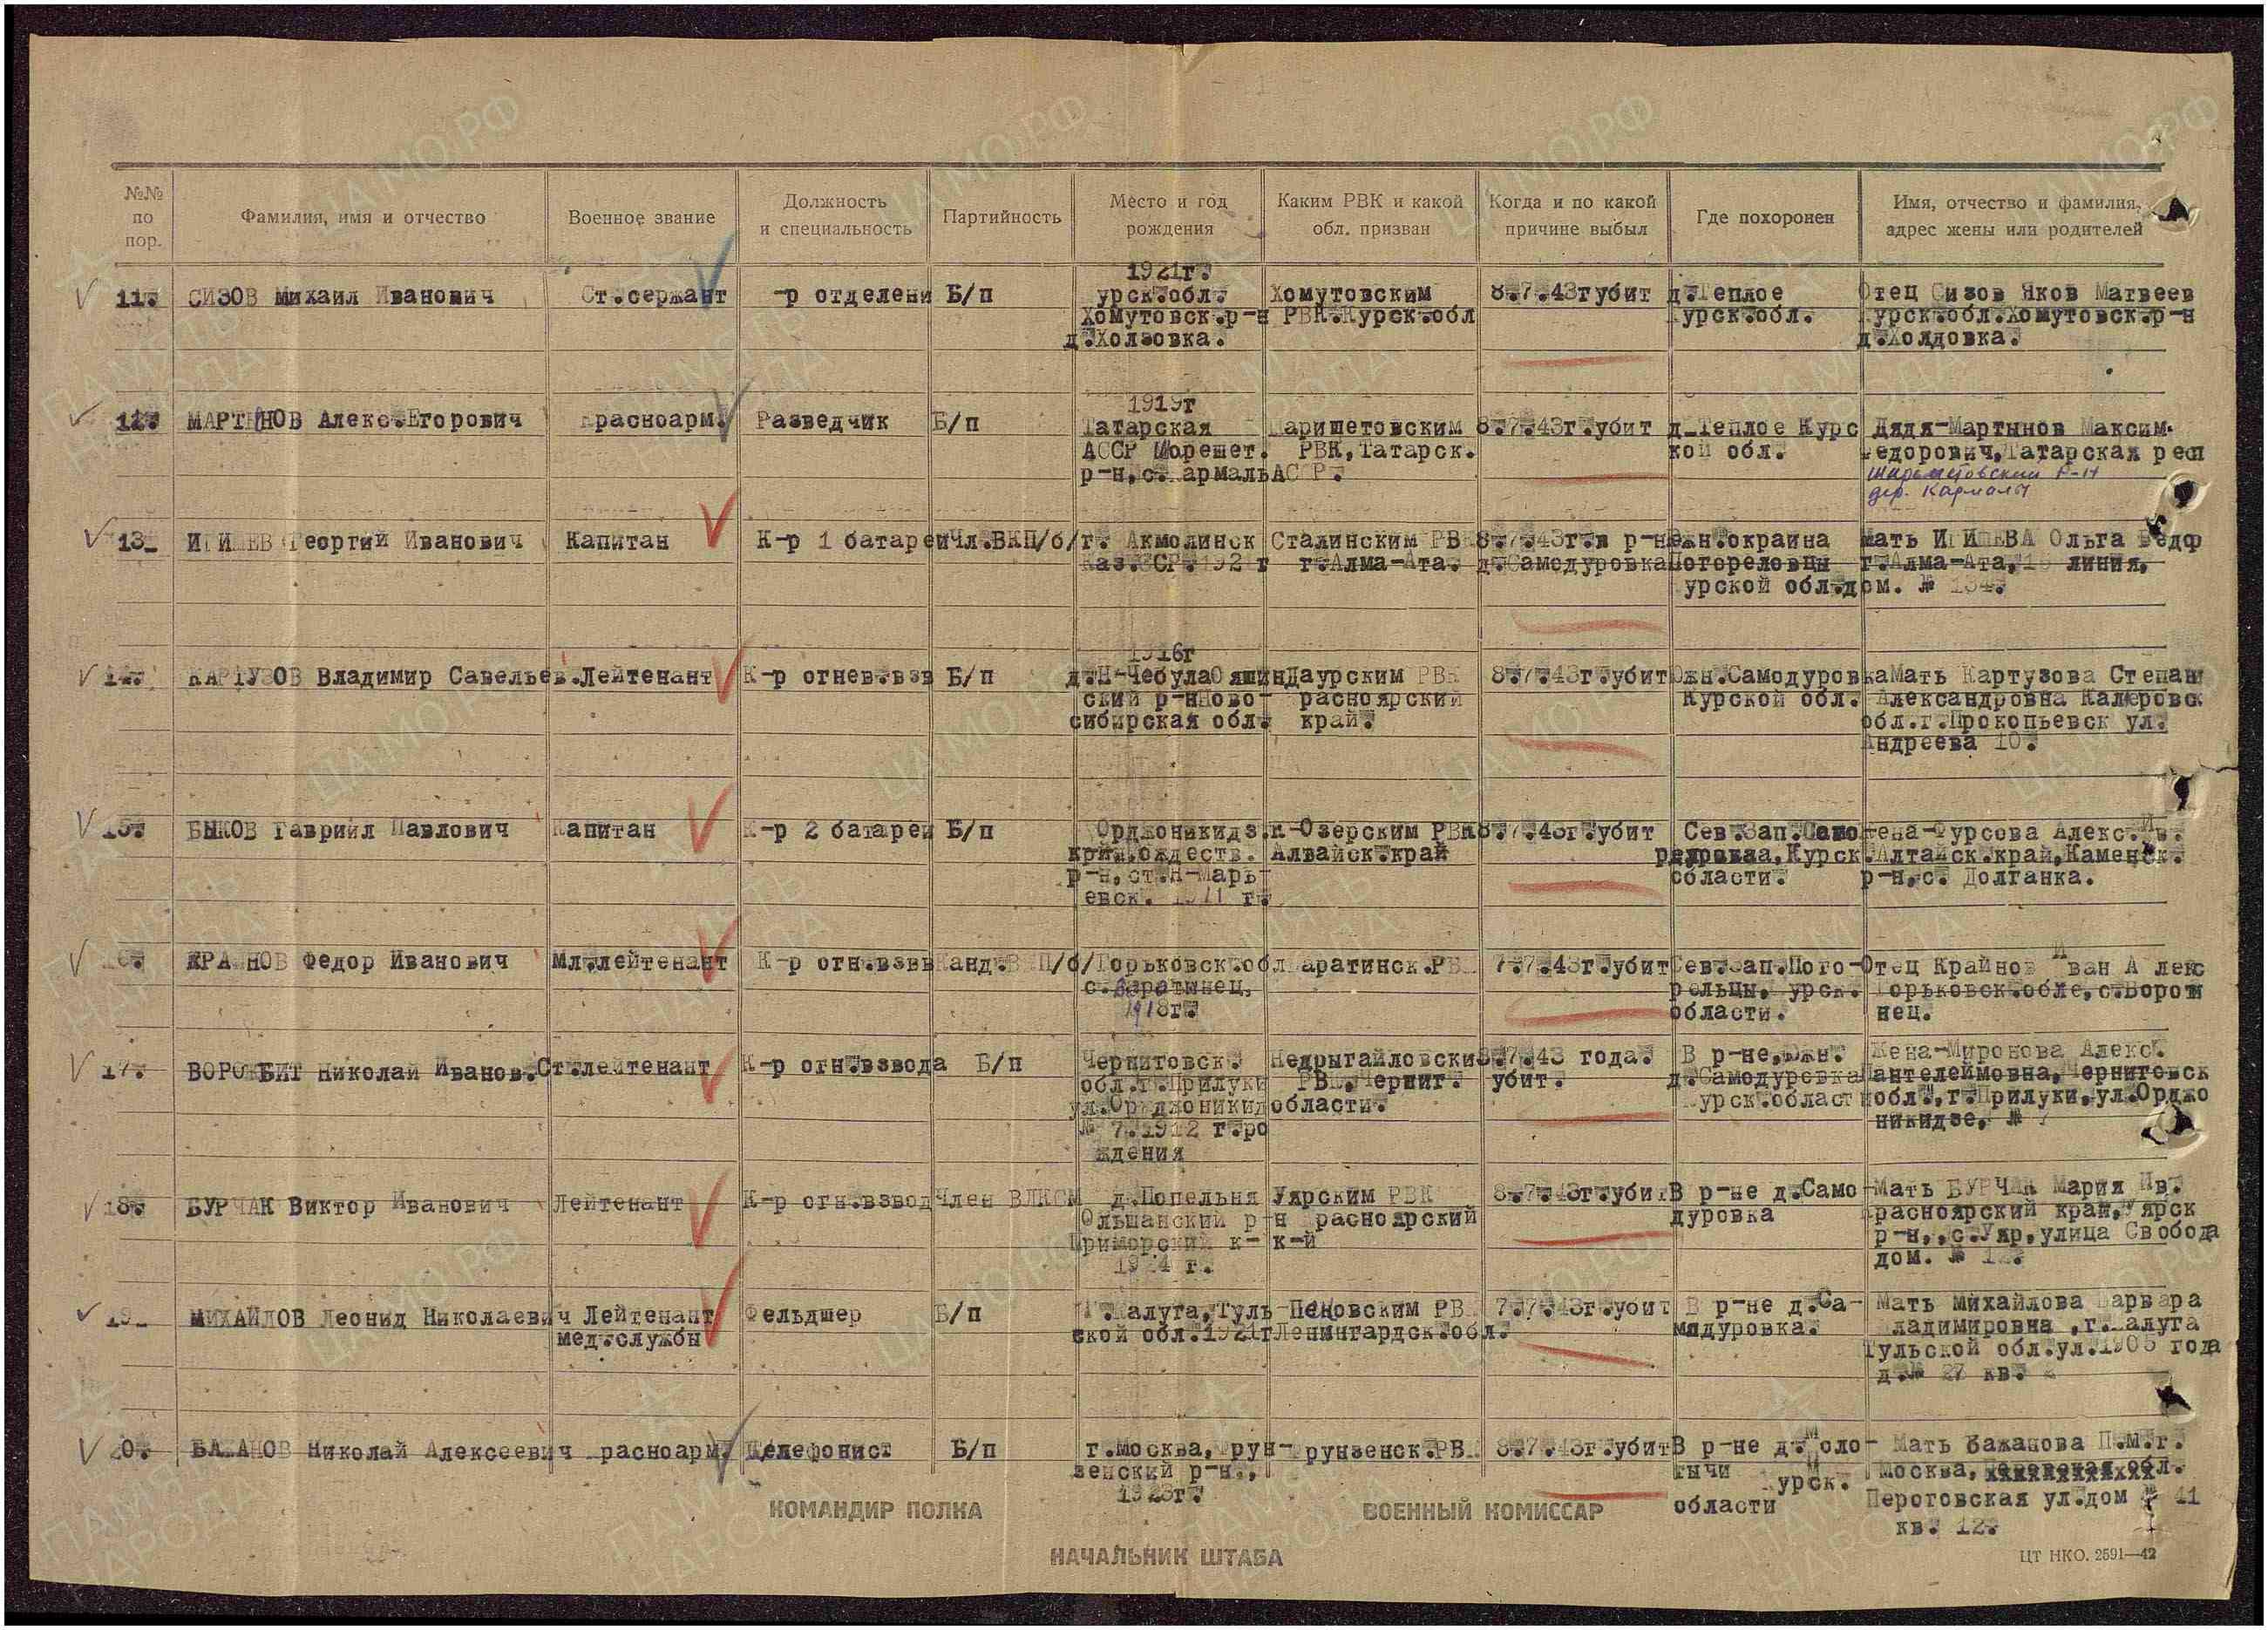 №№ по пор.
Фамилия, имя и отчество
Военное звание
Должность и специальность
Партийность
Место и год рождения
Каким РВК и какой обл. призван
Когда и по какой причине выбыл
Где похоронен
Имя, отчество и фамилия, адрес жены или родителей
1921г.
11. СИЗОВ Михаил Иванович Ст.сержант -р отделени Б/п урск.обл. Хомутовским 8.7.43губит д.Теплое Отец Сизов Яков Матвеев
Хомутовск.р-н РВК.Курск.обл урск.обл. урск.обл.Хомутовск.р-н
д.Холзовка. д.Холдовка.
1919г
12. МАРТЫНОВ Алекс.Егорович красноарм. Разведчик Б/п Татарская Шаришетовским 8.7.43г.убит д.Теплое Курс Дядя-Мартынов Максим.
АССР Шорешет. РВК,Татарск. кой обл. Федорович,Татарская респ
р-н,с. армаль АССР. шареметовский р-н
дер. Кармалы
13_ ИГИШЕВ Георгий Иванович Капитан К-р 1 батареи Чл.ВКП/б/ г. Акмолинск Сталинским РВ 8.7.43г.в р-не Южн.окраина Мать ИГИШЕВА Ольга Федф
Каз.ССР.1921г г.Алма-Ата. д.Самодуровка Погореловцы г.Алма-Ата, линия,
урской обл. дом. № 134.
1916г
14. КАРТУЗОВ Владимир Савельев. Лейтенант К-р огнев.взв Б/п д.Н-Чебула Ояшин Даурским РВК 8.7.43г.убит Южн.Самодуровка Мать Картузова Степан
ский р-н Ново- расноярский Курской обл. Александровна Камеровс
сибирская обл. край. обл.г.Прокопьевск ул.
Андреева 10.
15. БЫКОВ Гавриил Павлович Капитан К-р 2 батареи Б/п Орджоникидз. К-Озерским РВК 8.7.43г.убит Сев.Зап.Само Жена-Фурсова Алекс.Ив.
край. ождеств. Алвайск.край Курск. Алтайск.край,Каменск.
р-н,ст.Н-Марь- области. р-н,с. Долганка.
евск. 1911 г.
16. КРАЙНОВ Федор Иванович Мл.лейтенант К-р огн.взв Канд.ВКП/б/ Горьковск.обл аратинск.РВ 7.7.43г.убит Сев.Зап.Пого- Отец Крайнов Иван Алекс
с. ратынец, рельцы, урск. Горьковск.обле,с.Ворот
1918г. области. нец.
17. ВОРОЖБИТ Николай Иванов. Ст.лейтенант К-р огн.взвода Б/п Черниговск. Недрыгайловски 8.7.43 года. В р-не,Южн. Жена-Миронова Алекс.
обл.г.Прилуки РВК.Черниг. убит. д.Самодуровка Пантелеймовна,Черниговск
ул.Орджоникид области. урск.област обл.,г.Прилуки,ул.Орджо
№ 7.1912 г.ро никидзе, № 7
ждения
18. БУРЧАК Виктор Иванович Лейтенант К-р огн.взвод Член ВЛКСМ д.Попельня Уярским РВК 8.7.43г.убит В р-не д.Само- Мать БУРЧАК Мария Ив.
Ольшанский р-н расноярский дуровка красноярский край,Уярск
Приморский к- к-й р-н,,с.Уяр,улица Свобода
1924 г. дом. №
19_ МИХАЙЛОВ Леонид Николаевич Лейтенант Фельдшер Б/п Г.Калуга,Туль- Пеновским РВ 7.7.43г.убит В р-не д.Са- Мать Михайлова Варвара
мед.службы ской обл.1921г Ленингардск.обл. мадуровка. ладимировна ,г.Калуга
Тульской обл.ул.1905 года
д.№ 27 кв. 2
20. БАЖАНОВ Николай Алексеевич расноарм. Телефонист Б/п г.Москва,Фрун- Фрунзенск.РВ 8.7.43г.убит В р-не д.Моло- Мать Бажанова П.М.г.
зенский р-н., тычи урск. Москва,
1923г. области Перотовская ул.дом № 41
кв. 12.
КОМАНДИР ПОЛКА
ВОЕННЫЙ КОМИССАР
НАЧАЛЬНИК ШТАБА
ЦТ НКО. 2591—42